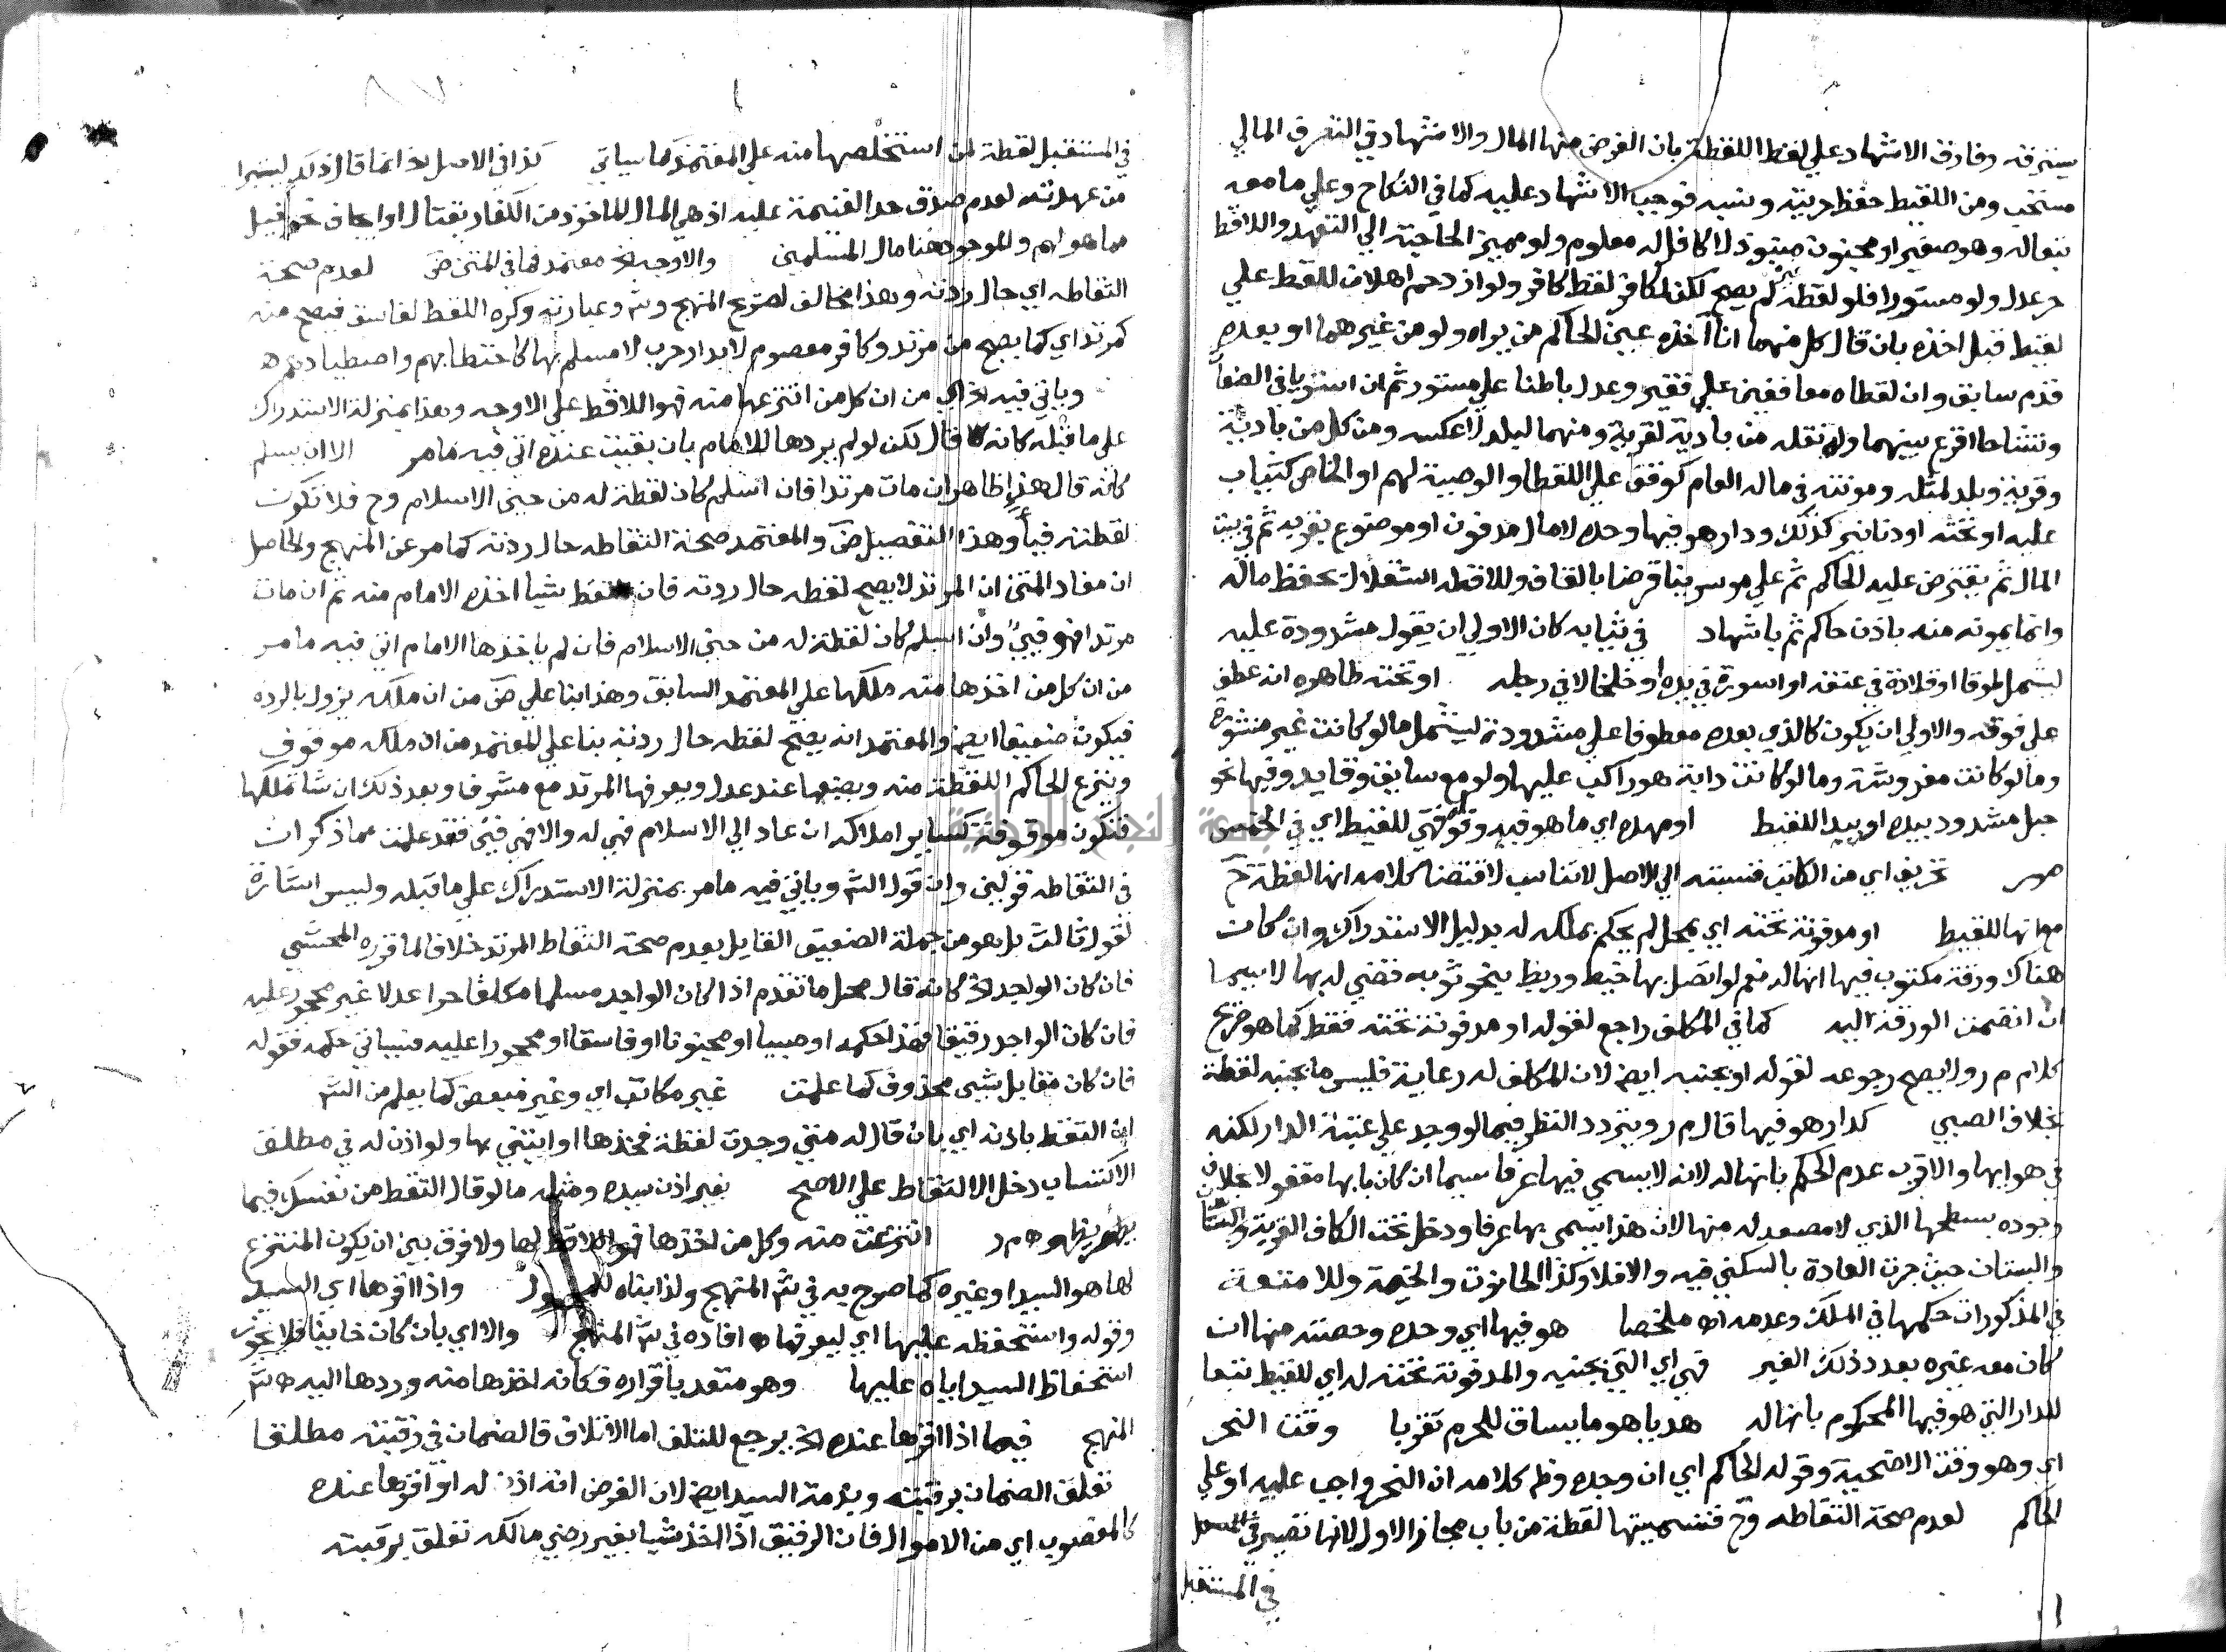 يسترقه وفارق الاشهاد علي لقط اللقطة بان الغرض منها المال والاشهاد في التصرف المالي
مستحب ومن اللقيط حفظ حريته ونسبه فوجب الاشهاد عليه كما في النكاح وعلي ما معه
تبعا له وهو صغير او مجنون منبوذ لا كافل له معلوم ولو مميز الحاجته الي التعهد واللاقط
حر عدل ولو مستورا فلو لقطه لم يصح لكن لكافر لقط كافر ولو ازدحم اهلان للقط علي
لقيط قبل اخذه بان قال كل منهما انا آخذه عين الحاكم من يراه ولو من غيرهما او بعده
قدم سابق وان لقطاه معا فغني علي فقير وعدل باطنا علي مستور ثم ان استويا في الصفات
وتشاحا اقرع بينهما وله نقله من بادية لقرية ومنهما لبلد لا عكسه ومن كل من بادية
وقرية وبلد لمثله ومونته في ماله العام كوقف علي اللقطا والوصية لهم او الخاص كثياب
عليه او تحته او دنانير كذلك ودار هو فيها وحده لا مال مدفون او موضوع بقربه ثم في بيت
المال ثم يقترض عليه الحاكم ثم علي موسرينا قرضا بالقاف وللاقطه استقلال بحفظ ماله
وانما يمونه منه باذن حاكم ثم باشهاد في ثيابه كان الاولي ان يقول مشدودة عليه
ليشمل لو قلادة في عنقه او اسورة في يده او خلخالا في رجله او تحته ظاهره انه عطف
علي فوقه والاولي ان يكون كالذي بعده معطوفا علي مشدودة ليشمل ما لو كانت غير منشورة
وما لو كانت مفروشة وما لو كانت دابة هو راكب عليها ولو مع سابق وقايد وفيها نحو
حبل مشدود بيده او بيد اللقيط او مهده اي ما هو فيه وقوله في للقيط اي في الخنس
تحريف اي من الكاتب فنسبته الي الاصل لا تناسب لاقتضا كلامه انها لقطة ح
مع انها للقيط او مدفونة تحته اي بمحل لم يحكم بملكه له بدليل الاستدراك وان كان
هناك ورقة مكتوب فيها انها له نعم لو اتصل بها خيط وربط بنحو ثوبه فقضي له بها لا سيما
ان انضمت الورقة اليه كما في المكلف راجع لقوله او مدفونة تحته فقط كما هو صريح
كلام م ر ولا يصح رجوعه لقوله او بجنبه ايضا لان المكلف له رعاية فليس ما بجنبه لقطة
بخلاف الصبي كدار هو فيها قال م ر ويتردد النظر فيما لو وجد علي عتبة الدار لكنه
في هوايها والاقرب عدم الحكم بانها له لانه لا يسمي فيها عرفا سيما ان كان بابها مقفولا بخلاف
وجوده بسطحها الذي لا مصعد له منها لان هذا يسمي بها عرفا ودخل تحت الكاف القرية
والبستان حيث جرت العادة بالسكني فيه والا فلا وكذا الحانوت والخيمة وللامتعة
في المذكورات حكمها في الملك وعدمه اه ملخصا هو فيها اي وحده وحصته منها ان
كان معه غيره بعدد ذلك الغير فهي اي التي بجنبه والمدفونة تحته له اي للقيط تبعا
للدار التي هو فيها المحكوم بانها له هديا هو ما يساق للحرم تقربا وقت النحر
اي وهو وقت الاضحية وقوله الحاكم اي ان وجده وظم كلامه ان النحر واجب عليه او علي
الحاكم لعدم صحة التقاطه وح فتسميتها لقطة من باب مجاز الاول لانها تصير
في المستقبل
في المستقبل لقطة لمن استخلصها منه علي المعتمد كما سياتي كذا في الاصل اخ انما قال ذلك ليتبرا
من عهدته لعدم صدق حد الغنيمة عليه اذ هي المال الماخوذ من الكفار بقتال او ايجاف نحو خيل
مما هو لهم والموجود هنا مال المسلمين والاوجه اخ معتمد فما في المتن ض لعدم صحة
التقاطه اي حال ردته وهذا مخالف لصريح المنهج وش وعبارته وكره اللقط لفاسق فيصح منه
كمرتد اي كما يصح من مرتد وكافر معصوم لا بدار حرب لا مسلم بها كاحتطابهم واصطيادهم ه
وياتي فيه اخ اي من ان كل من انتزعها منه فهو اللاقط علي الاوجه وهذا بمنزلة الاستدراك
علي ما قبله كانه قال لكن لو لم يردها للامام بان بقيت عنده اتي فيه ما مر الا ان يسلم
كانه قال هذا ظاهر ان مات مرتدا فان اسلم كان لقطة له من حين الاسلام وح فلا تكون
لقطته فيأ وهذا التفصيل ض والمعتمد صحة التقاطه حال ردته كما مر عن المنهج والحاصل
ان مفاد المتن ان المرتد لا يصح لقطه حال ردته فان لقط شيا اخذه الامام منه ثم ان مات
مرتدا فهو فيئ وان اسلم كان لقطة له من حين الاسلام فان لم ياخذها الامام اتي فيه ما مر
من ان كل من اخذها منه ملكها علي المعتمد السابق وهذا بنا علي ض من ان ملكه يزول بالرده
فيكون ضعيفا ايضا والمعتمد انه يصح لقطه حال ردته بنا علي المعتمد من ان ملكه موقوف
وينزع الحاكم اللقطة منه ويضعها عند عدل ويعرفها المرتد مع مشرف وبعد ذلك ان شا تملكها
فتكون موقوفة كساير املاكه ان عاد الي الاسلام فهي له والا فهي فيئ فقد علمت مما ذكر ان
في التقاطه قولين وان قول الش وياتي فيه ما مر بمنزلة الاستدراك علي ما قبله وليس اشارة
لقول ثالث بل هو من جملة الضعيف القايل بعدم صحة التقاط المرتد خلافا لما قرره المحشي
فان كان الواجد اخ كانه قال محل ما تقدم اذا كان الواجد مسلما مكلفا حرا عدلا غير محجور عليه
فان كان الواجد رقيقا فهذا حكمه او صبيا او مجنونا او فاسقا او محجورا عليه فسياتي حكمه فقوله
فان كان مقابل بشيء محذوف كما علمت غير مكاتب اي وغير مبعض كما يعلم من الش
ان التقط باذنه اي بان قال له متي وجدت لقطة فخذها او ايتني بها ولو اذن له في مطلق
الاكتساب دخل الالتقاط علي الاصح بغير اذن سيده ومثله ما لو قال التقط عن نفسك فيما
انتزعت منه وكل من اخذها فهو اللاقط لها ولا فرق بين ان يكون المنتزع
لها هو السيد او غيره كما صرح به في ش المنهج ولذا بناه للمجهول واذا اقرها اي السيد
وقوله واستحفظه عليها اي ليعرفها اه افاده في ش المنهج والا اي بان كان خاينا فلا يجوز
استحفاظ السيد اياه عليها وهو متعد باقراره فكانه اخذها منه وردها اليه ه ش
المنهج فيما اذا اقرها عنده اخ يرجع للتلف اما الاتلاف فالضمان في رقبته مطلقا
تعلق الضمان برقبته وبذمة السيد ايضا لان الفرض انه اذن له او اقرها عنده
كالمغصوب اي من الاموال فان الرقيق اذا اخذ شيا بغير رضي مالكه تعلق برقبته